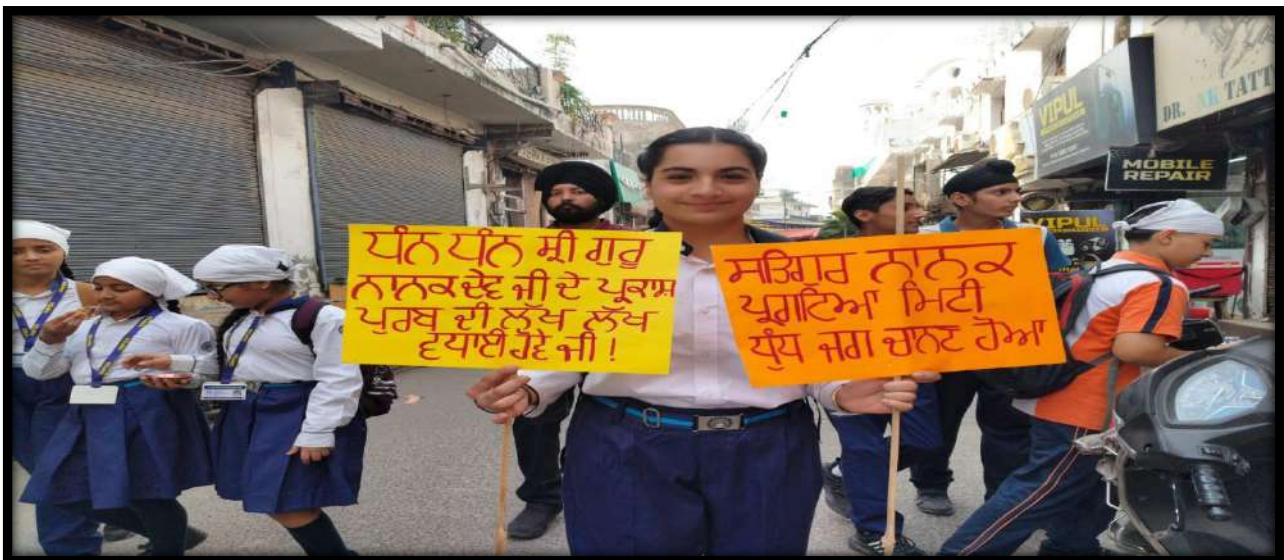 ਧੰਨ ਧੰਨ ਸ਼੍ਰੀ ਗੁਰੂ
ਨਾਨਕ ਦੇਵ ਜੀ ਦੇ ਪ੍ਰਕਾਸ਼
ਪੁਰਬ ਦੀ ਲੱਖ ਲੱਖ
ਵਧਾਈ ਹੋਵੇ ਜੀ !
ਸਤਿਗੁਰ ਨਾਨਕ
ਪ੍ਰਗਟਿਆ ਮਿਟੀ
ਧੁੰਧ ਜਗ ਚਾਨਣ ਹੋਆ
VIPUL
DR. TATT
MOBILE
REPAIR
VIPUL